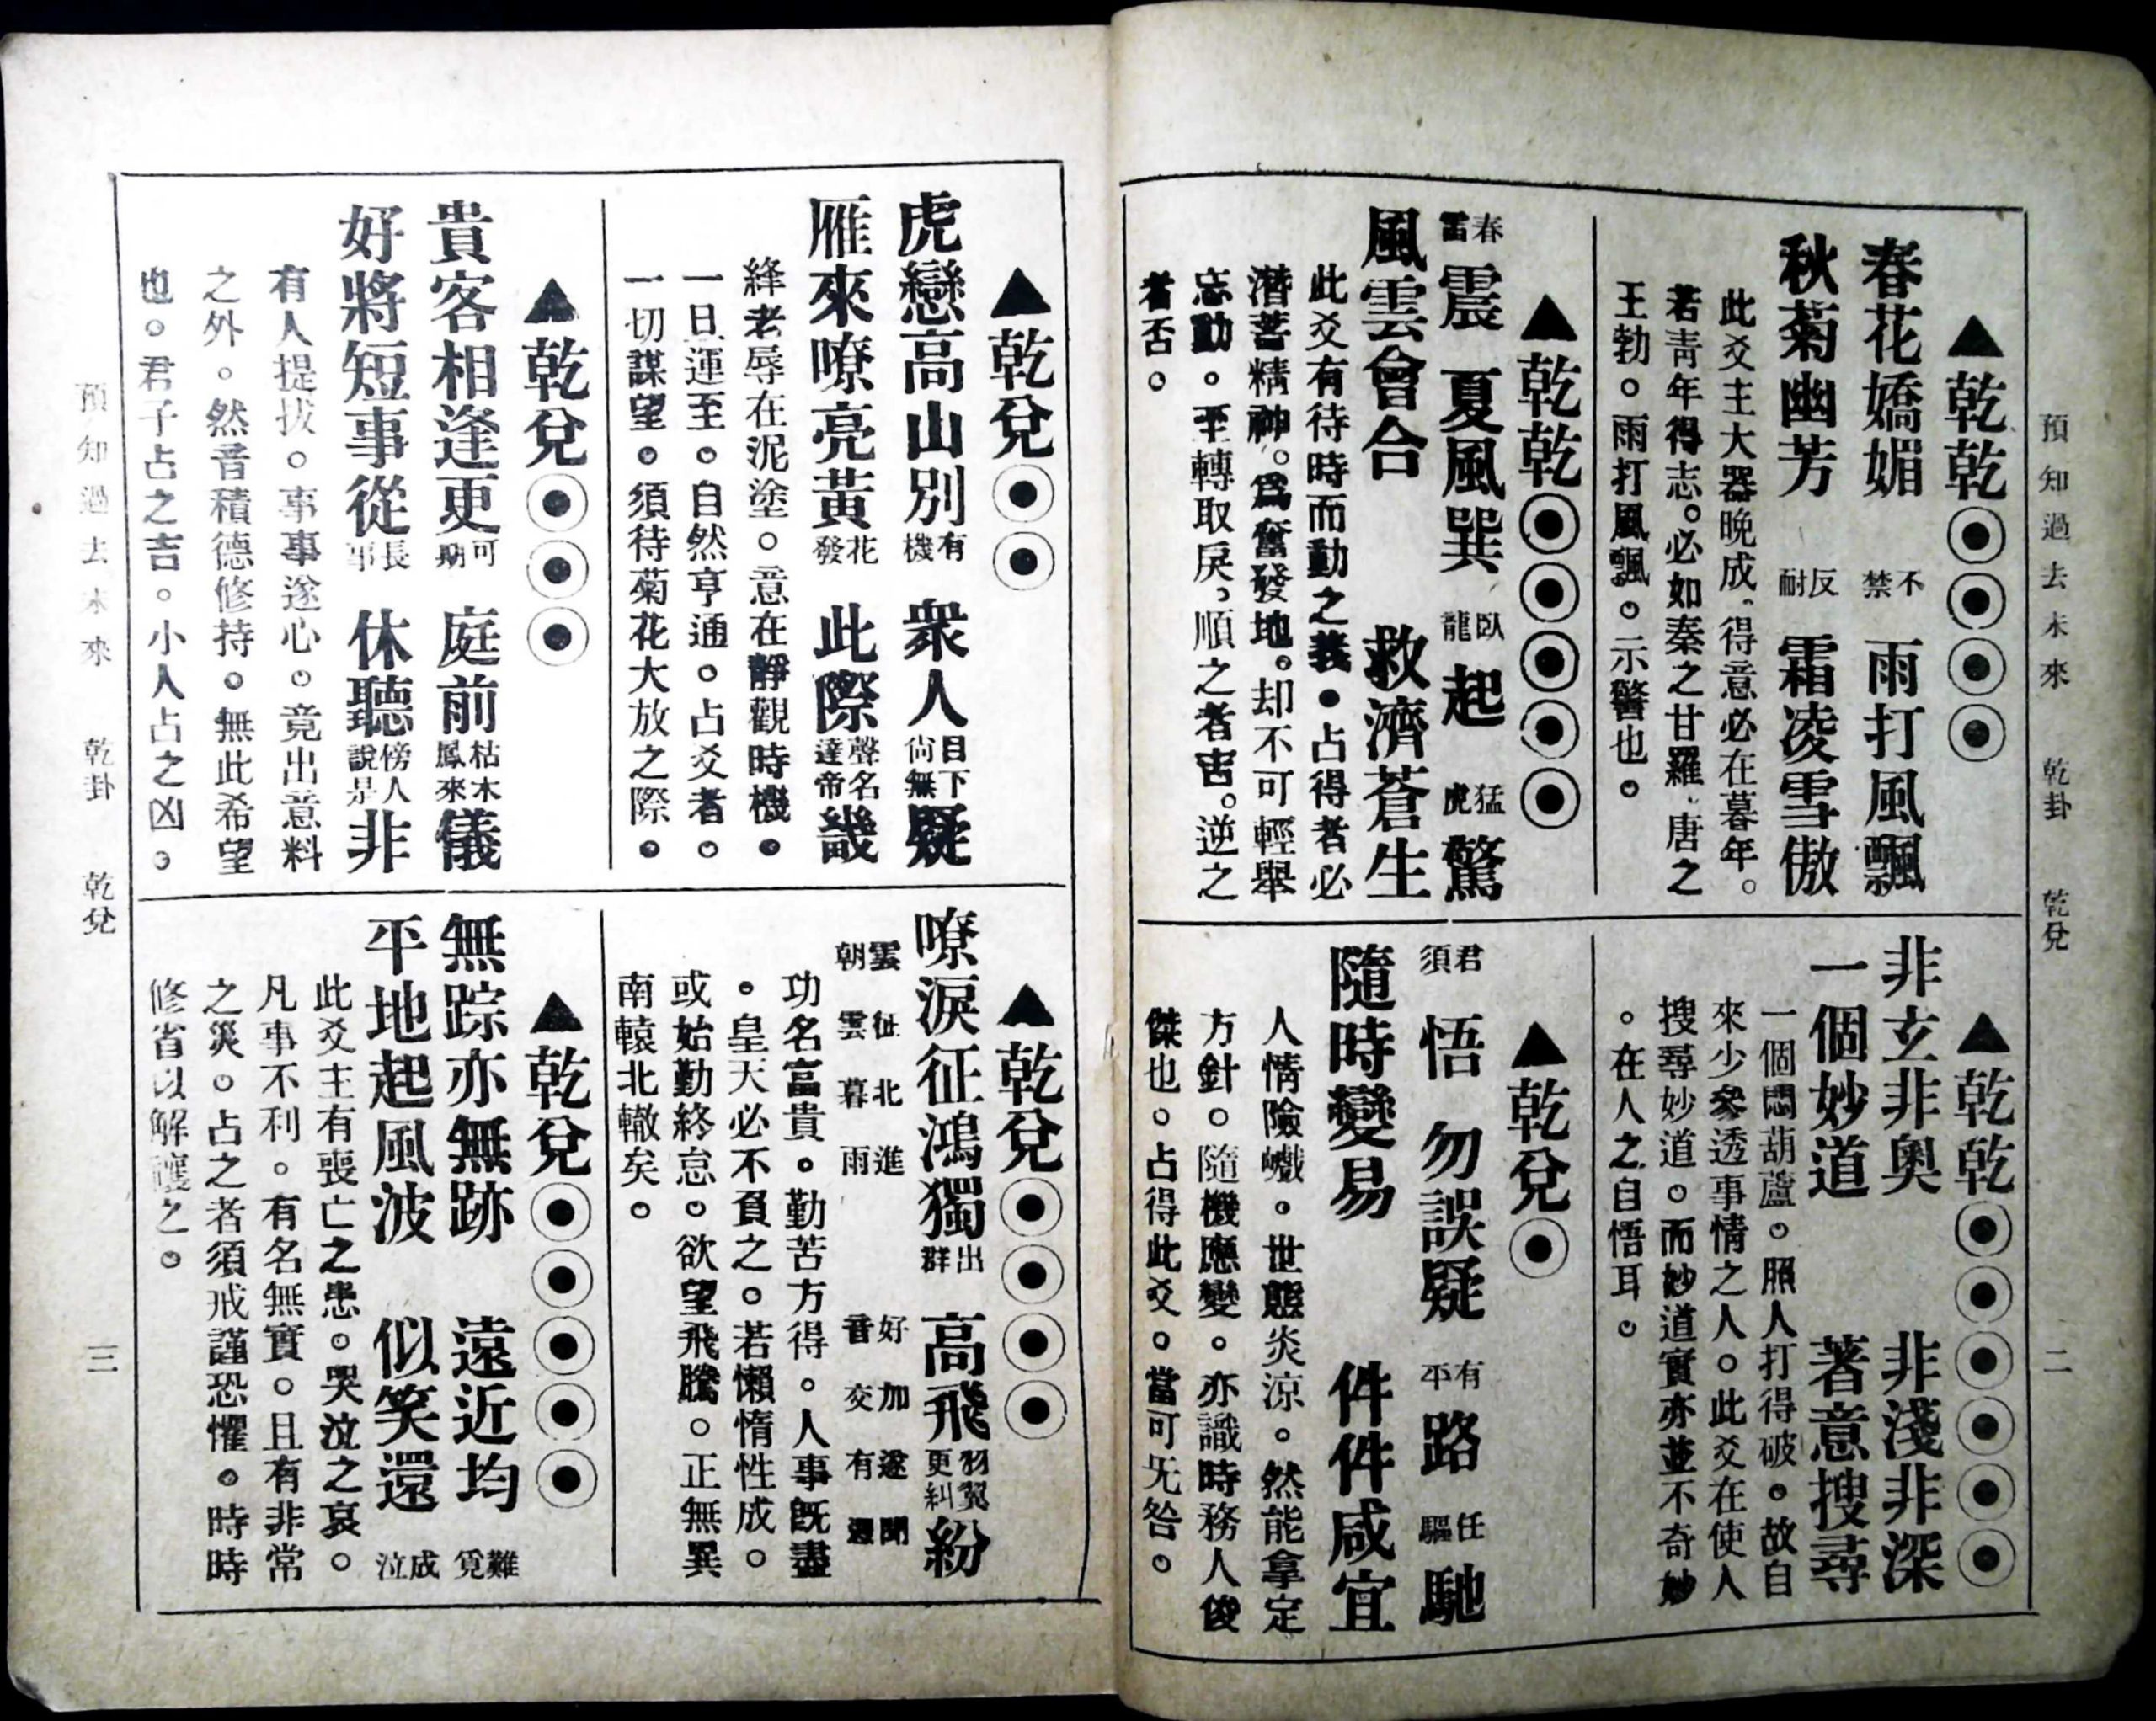 預知過去未來 乾卦 乾兌 二
▲乾乾⦿⦿⦿⦿
春花嬌媚不禁雨打風飄
秋菊幽芳反耐霜凌雪傲
此爻主大器晚成.得意必在暮年。
若靑年得志。必如秦之甘羅.唐之
王勃。雨打風飄。示警也。
▲乾乾⦿⦿⦿⦿⦿
春雷震 夏風巽 臥龍起 猛虎驚
風雲會合 救濟蒼生
此爻有待時而動之義●占得者必
潛菩精神。爲奮發地。却不可輕舉
忘動。至轉取戾。順之者吉。逆之
者否。
▲乾乾⦿⦿⦿⦿⦿⦿
非玄非奧 非淺非深
一個妙道 著意搜尋
一個悶葫蘆。照人打得破。故自
來少參透事情之人。此爻在使人
搜尋妙道。而妙道實亦並不奇妙
。在人之自悟耳。
▲乾兌⦿
君須悟 勿誤疑 有平路 任驅馳
隨時變易 件件咸宜
人情險巇。世態炎涼。然能拿定
方針。隨機應變。亦識時務人俊
傑也。占得此爻。當可旡咎。
▲乾兌⦿⦿
虎戀高山別有機 衆人目下尙無疑
雁來嘹亮黃花發 此際聲名達帝畿
絳老辱在泥塗。意在靜觀時機。
一旦運至。自然亨通。占爻者。
一切謀望。須待菊花大放之際。
▲乾兌⦿⦿⦿
貴客相逢更可期 庭前枯木鳳來儀
好將短事從長事 休聽傍人說是非
有人提拔。事事遂心。竟出意料
之外。然晉積德修持。無此希望
也。君子占之吉。小人占之凶。
▲乾兌⦿⦿⦿⦿
嘹淚征鴻獨出群 高飛羽翼更糾紛
雲征北進 好加遂聞
朝雲暮雨 音交有
功名富貴。勤苦方得。人事旣盡
。皇天必不負之。若懶惰性成。
或始勤終怠。欲望飛騰。正無異
南轅北轍矣。
▲乾兌⦿⦿⦿⦿⦿
無踪亦無跡 遠近均難覓
平地起風波 似笑還成泣
此爻主有喪亡之患。哭泣之哀。
凡事不利。有名無實。且有非常
之災。占之者須戒謹恐懼。時時
修省以解禳之。
預知過去未來 乾卦 乾兌 三